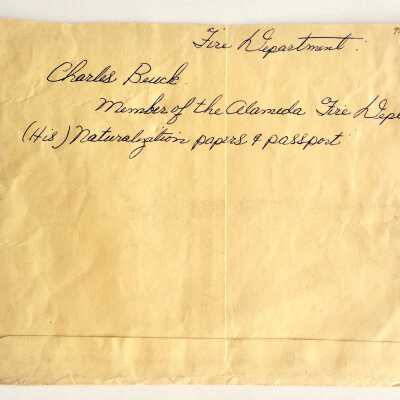 Fire Department.
Charles Beuck.
Member of the Alameda Fire Depe
(His) Naturalization papers & passport